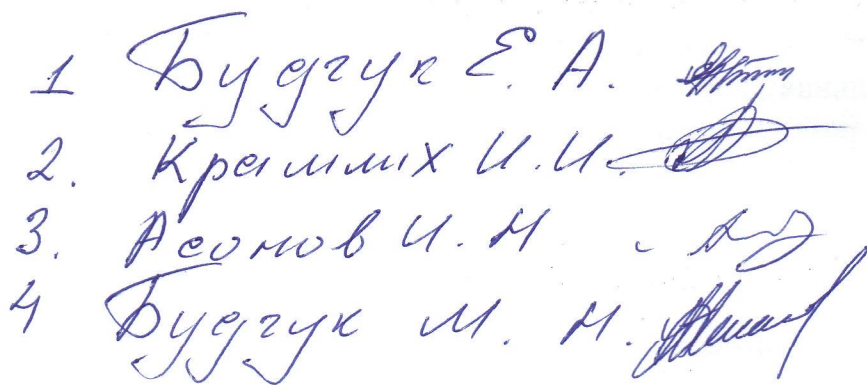 1 Будчук Е. А.
2. Крамлих И. И.
3. Асонов И. Н
4 Будчук М. Н.